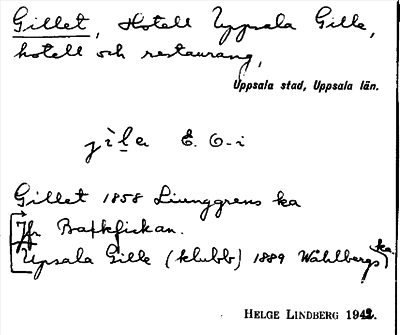 Gillet, Hotell Uppsala Gille,
hotell och restaurang,
Uppsala stad, Uppsala län.
E. O-i
Gillet 1858 Ljunggrens ka
Jfr Bakfickan.
Upsala Gille (klubb) 1889 Wåhlbergs ka
HELGE LINDBERG 1942.